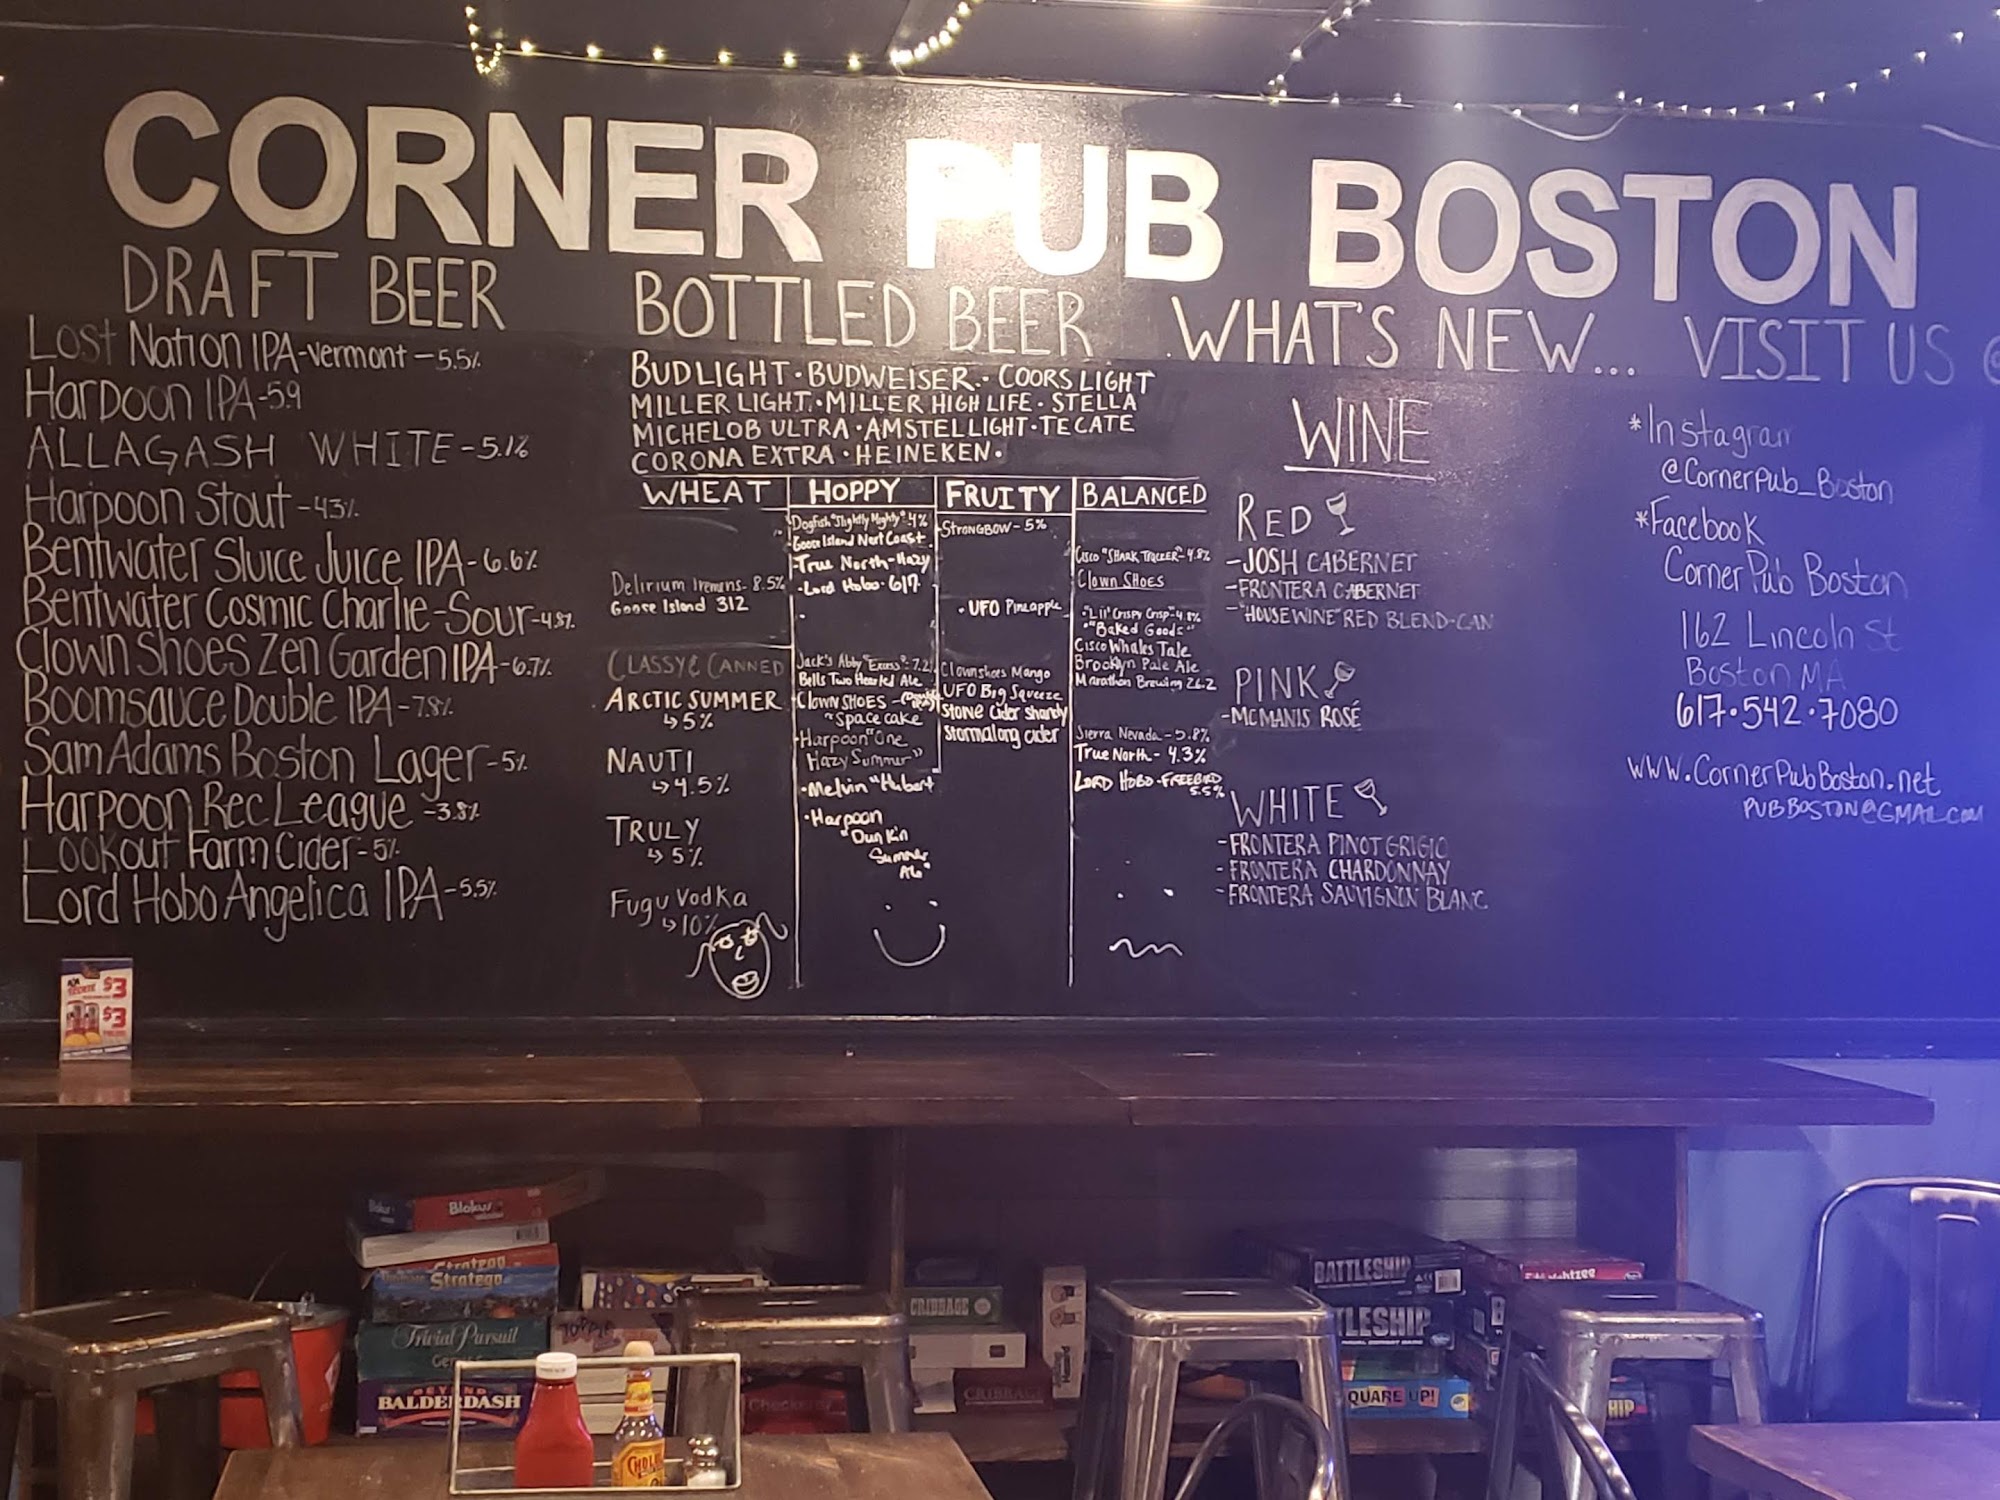 CORNER PUB BOSTON
DRAFT BEER
Lost Nation IPA-Vermont-5.5%
Harpoon IPA-5.9
ALLAGASH WHITE-5.1%
Harpoon Stout-4.3%
Bentwater Sluice Juice IPA-6.6%
Bentwater Cosmic Charlie-Sour-4.8%
Clown Shoes Zen Garden IPA-6.7%
Boomsauce Double IPA-7.8%
Sam Adams Boston Lager-5%
Harpoon Rec League-3.8%
Lookout Farm Cider-5%
Lord Hobo Angelica IPA-5.5%
BOTTLED BEER
BUDLIGHT·BUDWEISER·COORS LIGHT
MILLER LIGHT·MILLER HIGH LIFE·STELLA
MICHELOB ULTRA·AMSTELLIGHT·TECATE
CORONA EXTRA·HEINEKEN·
WHEAT
Delirium Tremens-8.5%
Goose Island 312
CLASSY & CANNED
ARCTIC SUMMER
↳5%
NAUTI
↳4.5%
TRULY
↳5%
Fugu Vodka
↳10%
HOPPY
Dogfish "Slightly Mighty"-4%
Goose Island Next Coast
-True North-Hazy
-Lord Hobo-617
Jack's Abby "Excess"-7.2
Bells Two Hearted Ale
Clown SHOES-
"Space cake
-Harpoon "One
Hazy Summer"
·Melvin "Hubert
·Harpoon
"Dunkin
Summer
Ale"
FRUITY
STRONGBOW-5%
·UFO Pineapple
Clownshoes Mango
UFO Big Squeeze
Stone Cider Shandy
Stormalong cider
BALANCED
Cisco "SHARK TRACKER"-4.8%
Clown SHOES
·"Lil' Crispy Crisp"-4.8%
·"Baked Goods"
Cisco Whales Tale
Brooklyn Pale Ale
Marathon Brewing 26.2
Sierra Nevada-5.8%
True North-4.3%
LORD HOBO-FREEBIRD
5.5%
WHAT'S NEW...
WINE
RED
-JOSH CABERNET
-FRONTERA CABERNET
-"HOUSE WINE" RED BLEND-CAN
PINK
-MCMANIS ROSÉ
WHITE
-FRONTERA PINOT GRIGIO
-FRONTERA CHARDONNAY
-FRONTERA SAUVIGNON BLANC
VISIT US @
*Instagram
@CornerPub_Boston
*Facebook
Corner Pub Boston
162 Lincoln St
Boston MA
617·542·7080
WWW.CornerPubBoston.net
PUBBOSTON@GMAIL.COM
$3
$3
Blokus
Stratego
Stratego
Trivial Pursuit
BEYOND
BALDERDASH
TOPPLE
CRIBBAGE
CRIBBAGE
Checkers
BATTLESHIP
TLESHIP
QUARE UP!
HIP
CHOLU